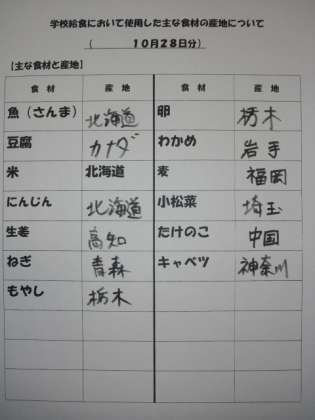 学校給食において使用した主な食材の産地について
(　10月28日分)
【主な食材と産地】
食材　産地　食材　産地
魚(さんま)　北海道　卵　栃木
豆腐　カナダ　わかめ　岩手
米　北海道　麦　福岡
にんじん　北海道　小松菜　埼玉
生姜　高知　たけのこ　中国
ねぎ　青森　キャベツ　神奈川
もやし　栃木